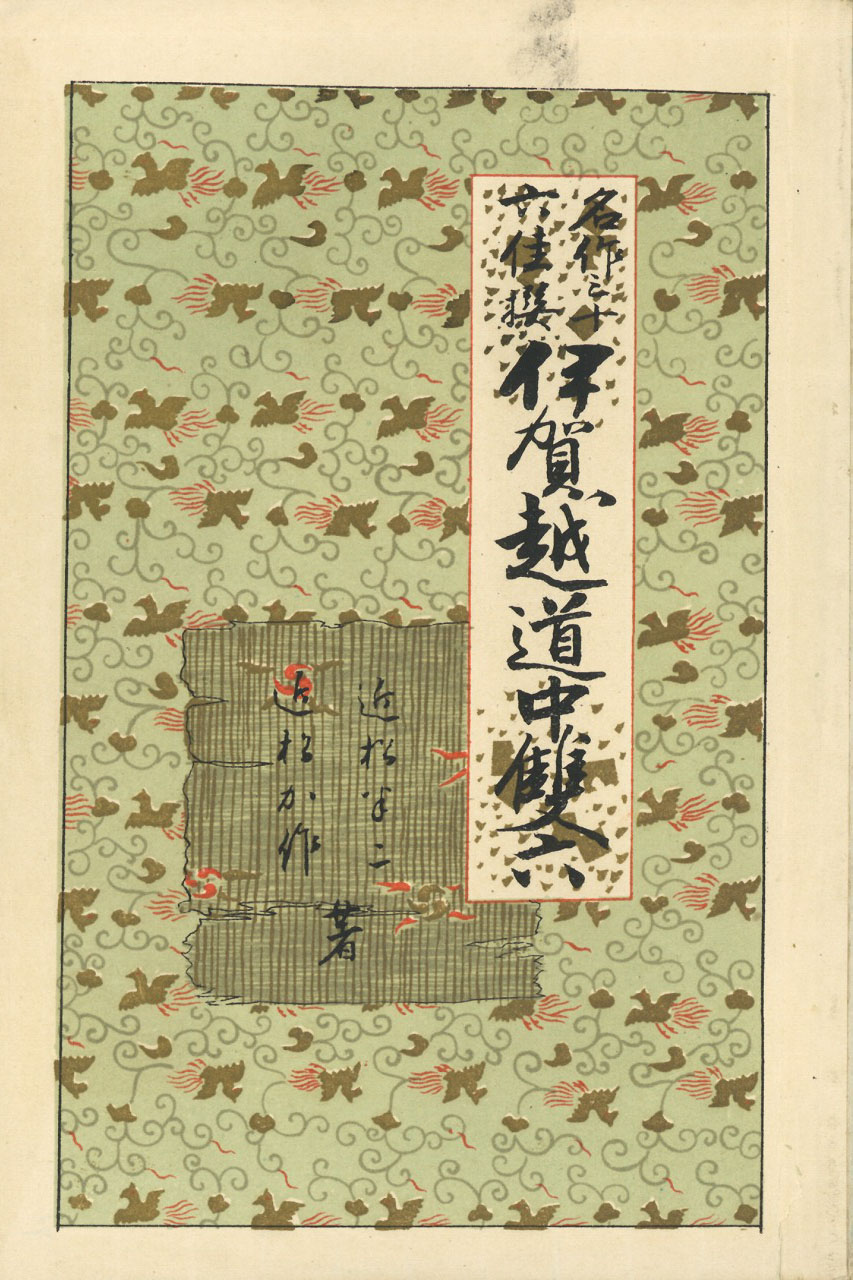 名作三十
六佳撰
伊賀越道中雙六
近松半二
近松加作
著